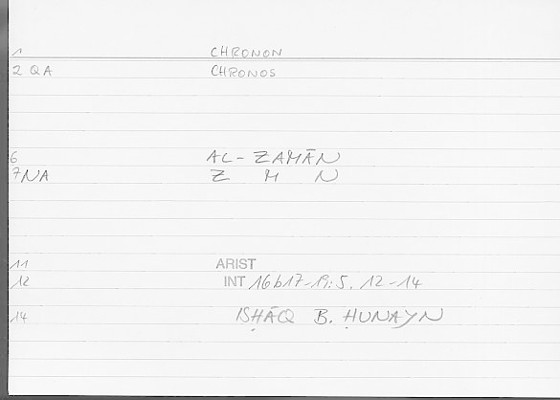 1 CHRONON
2 QA CHRONOS
6 AL-ZAMĀN
7 NA Z M N
11 ARIST
12 INT 16b17-19:5, 12-14
14 ISḤĀQ B. ḤUNAYN